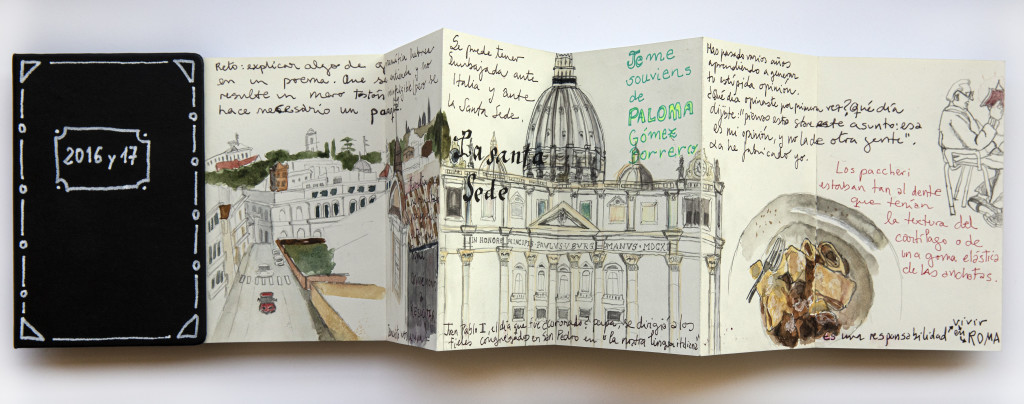 2016 y 17
Reto: explicar algo de gramática latina
en un poema. Que se entienda y no
resulte un mero tostón
hace necesario un
Se puede tener
Embajada ante
Italia y ante
la Santa Sede.
La santa
Sede
Je me
souviens
de
PALOMA
Gómez
Borrero
IN HONOREM PRINCIPIS PAVLVS V BVRGHESIVS ROMANVS MDCXII
Juan Pablo II, el día que fue ¿coronado? papa, se dirigía a los
fieles congregados en San Pedro en "la nostra lingua italiana"
Has pasado varios años
aprendiendo a generar
tu estúpida opinión.
¿Qué día opinaste por primera vez? ¿Qué día
dijiste: "pienso esto sobre este asunto: esa
es mi opinión, y no la de otra gente".
La he fabricado yo.
Los paccheri
estaban tan al dente
que tenían
la textura del
cartílago o de
una goma elástica
de las anchotas.
es una responsabilidad vivir
en ROMA